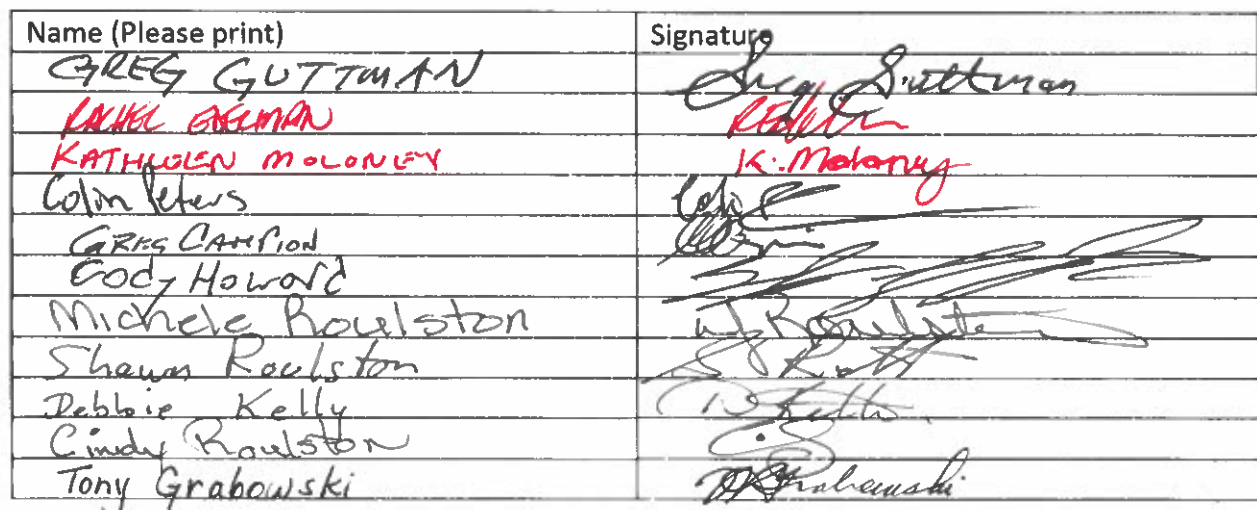 Name (Please print) Signature
GREG GUTTMAN Greg Guttman
RACHEL
KATHLEEN MOLONEY K. Moloney
Colin Peters Colin P
GREG CAMPION
Cody Howard
Michele Roulston MJ Roulston
Shawn Roulston S Roulston
Debbie Kelly D Kelly
Cindy Roulston
Tony Grabowski Grabowski